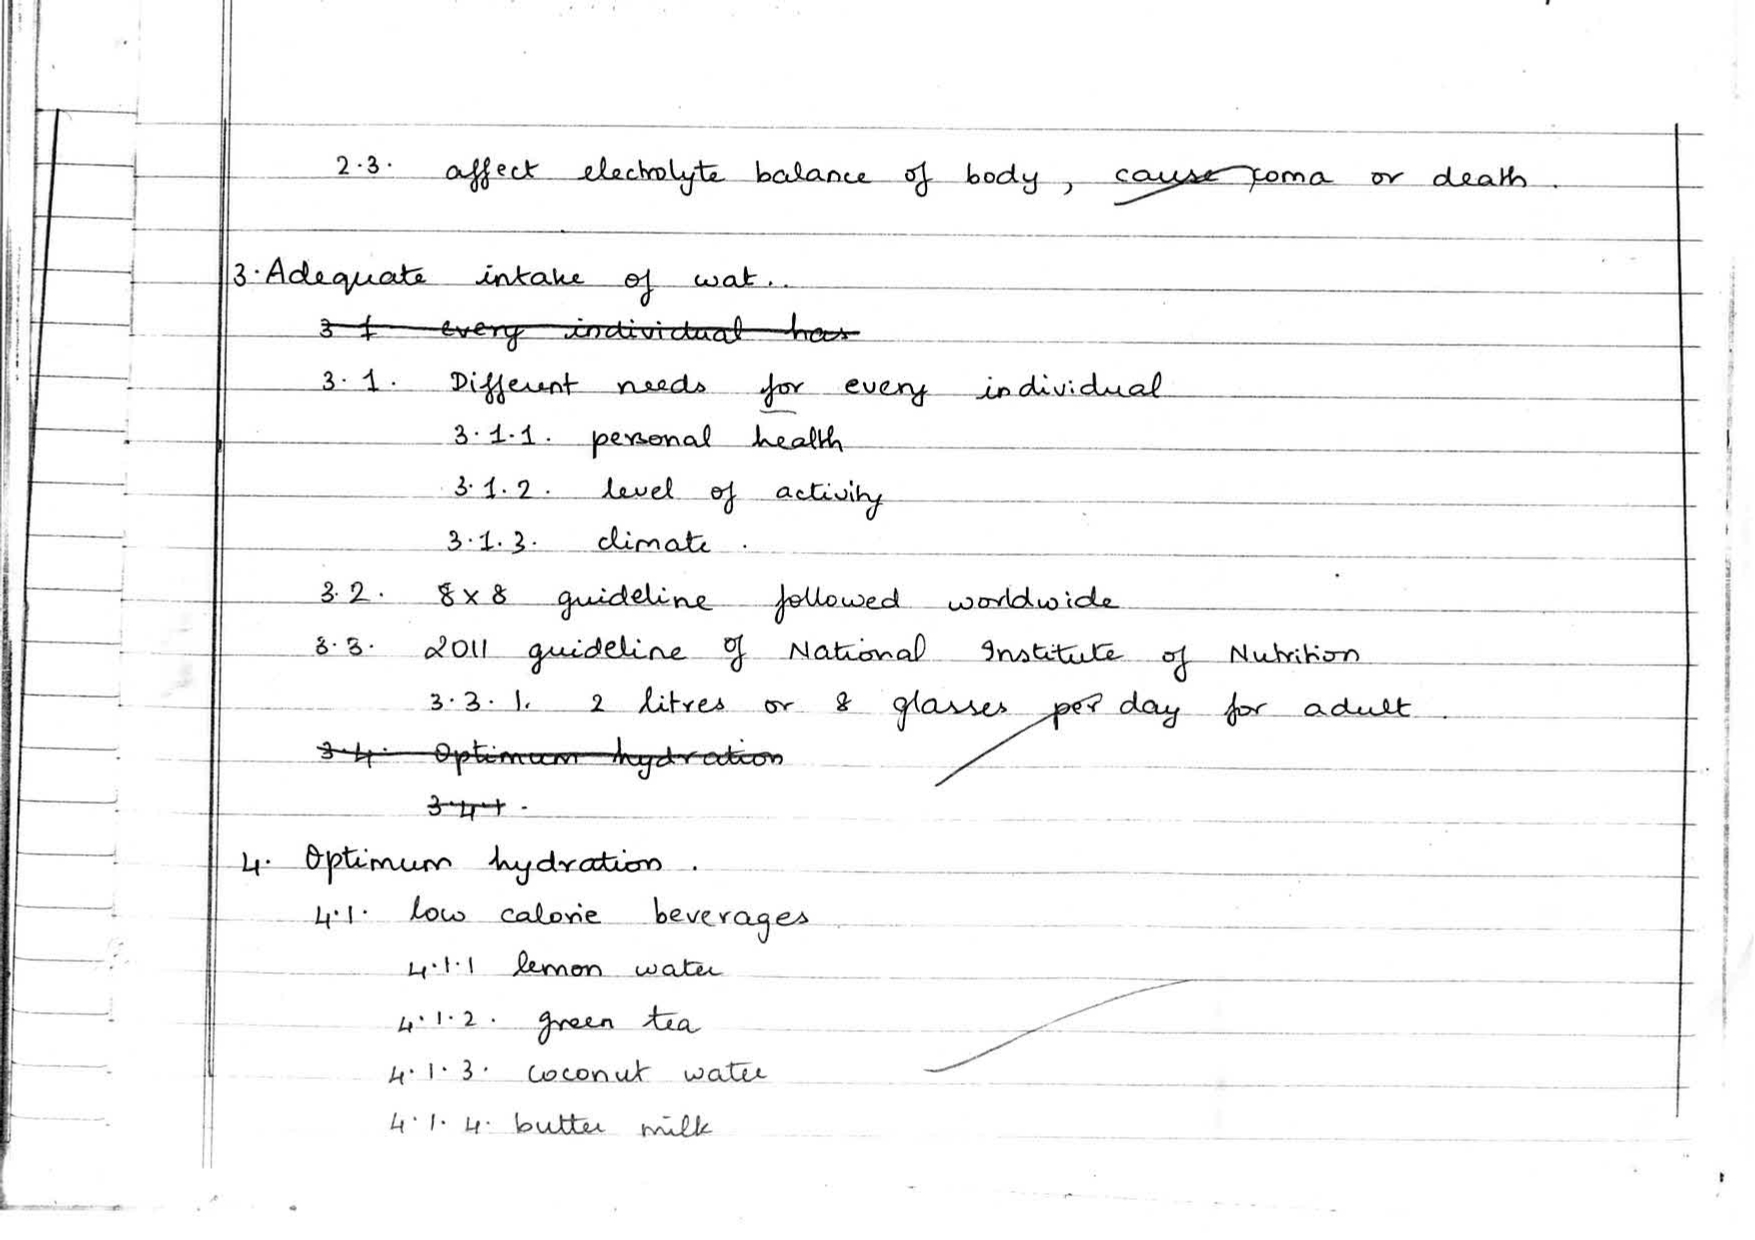 2.3. affect electrolyte balance of body, cause coma or death.
3. Adequate intake of wat..
3.1 every individual has
3.1. Different needs for every individual
3.1.1. personal health
3.1.2. level of activity
3.1.3. climate.
3.2. 8x8 guideline followed worldwide
3.3. 2011 guideline of National Institute of Nutrition
3.3.1. 2 litres or 8 glasses per day for adult.
3.4. Optimum hydration
3.4.1.
4. Optimum hydration.
4.1. low calorie beverages
4.1.1 lemon water
4.1.2. green tea
4.1.3. coconut water
4.1.4. butter milk